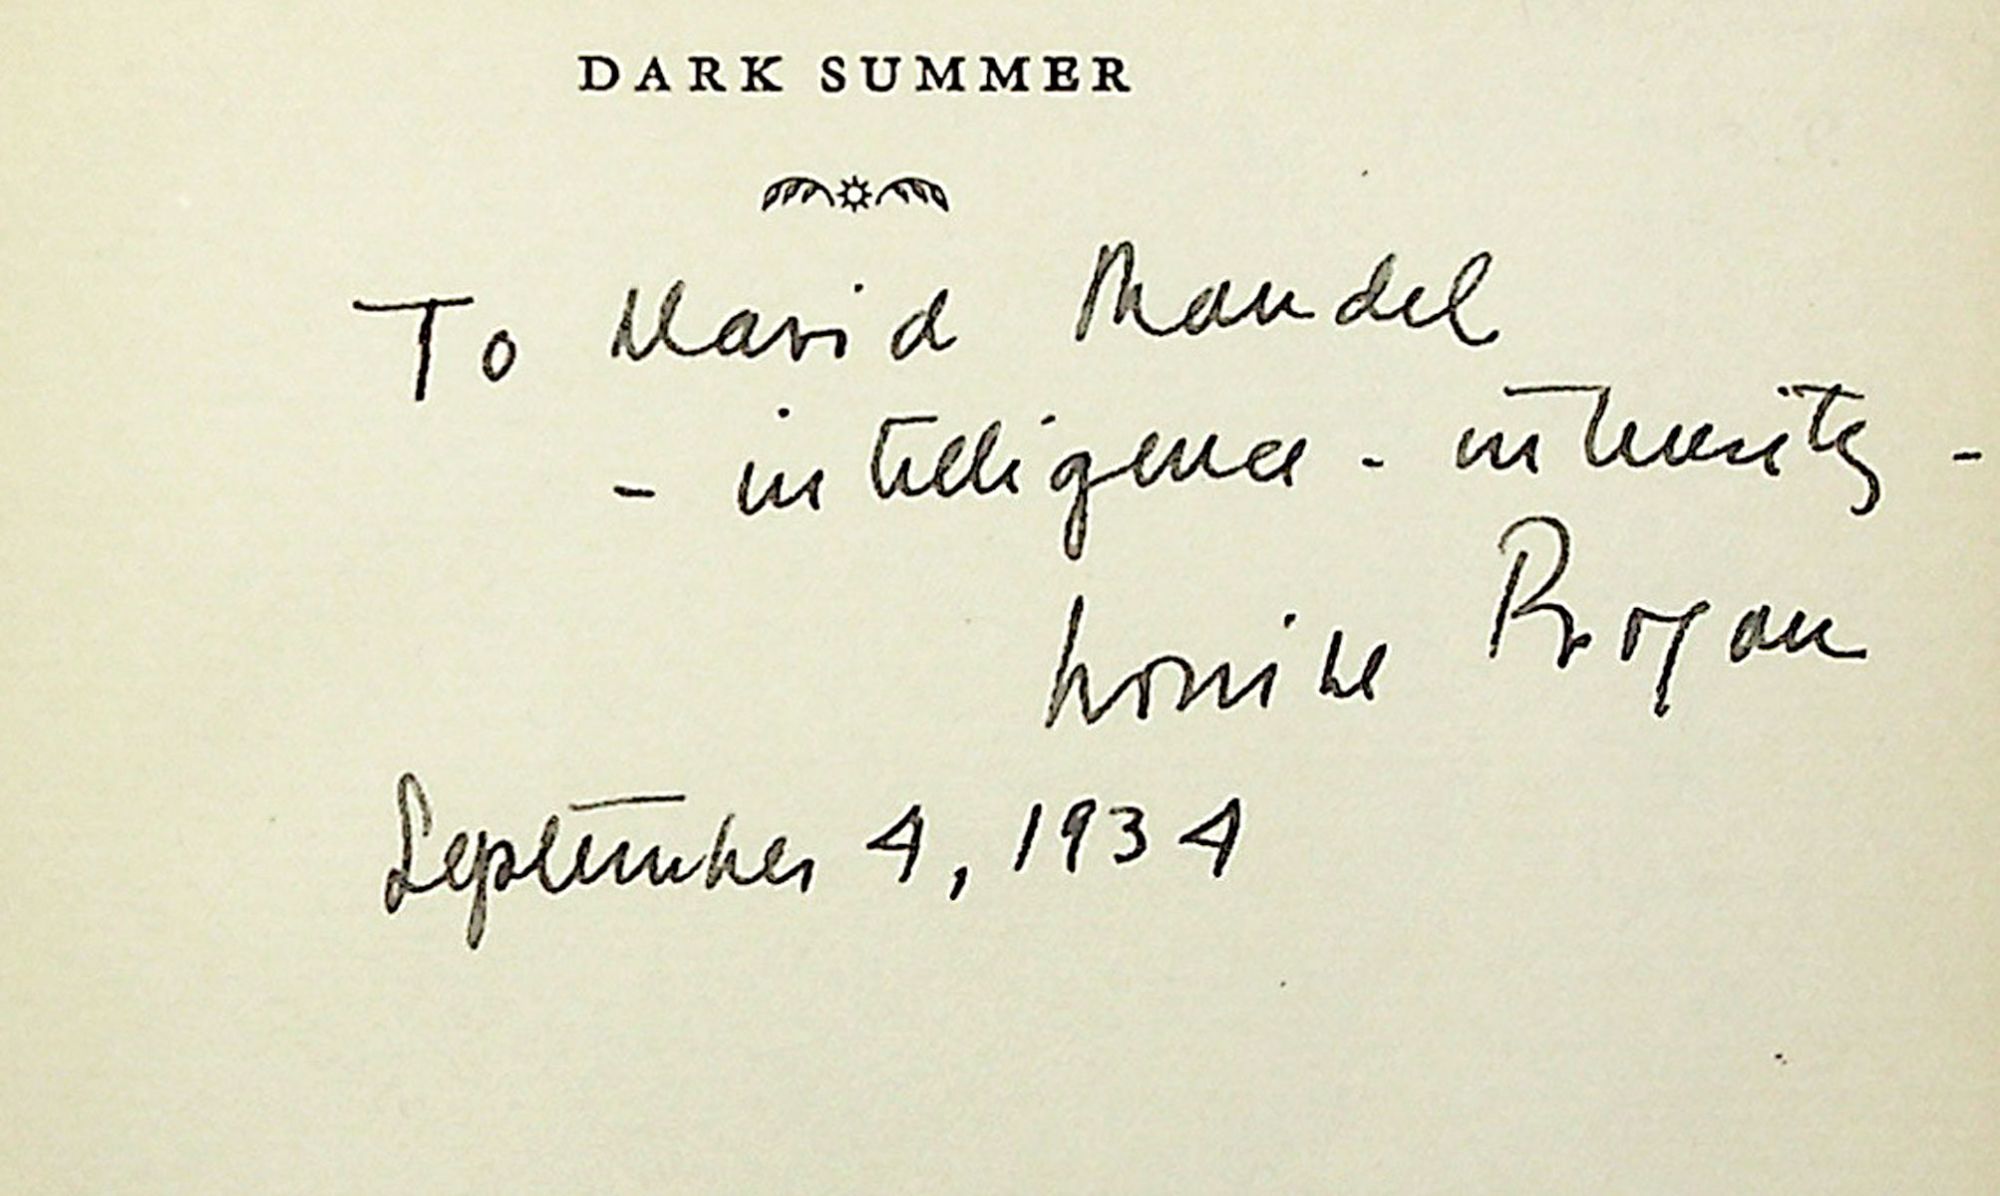 DARK SUMMER
To David Mandel
- intelligence - intensity -
Louise Bogan
September 4, 1934